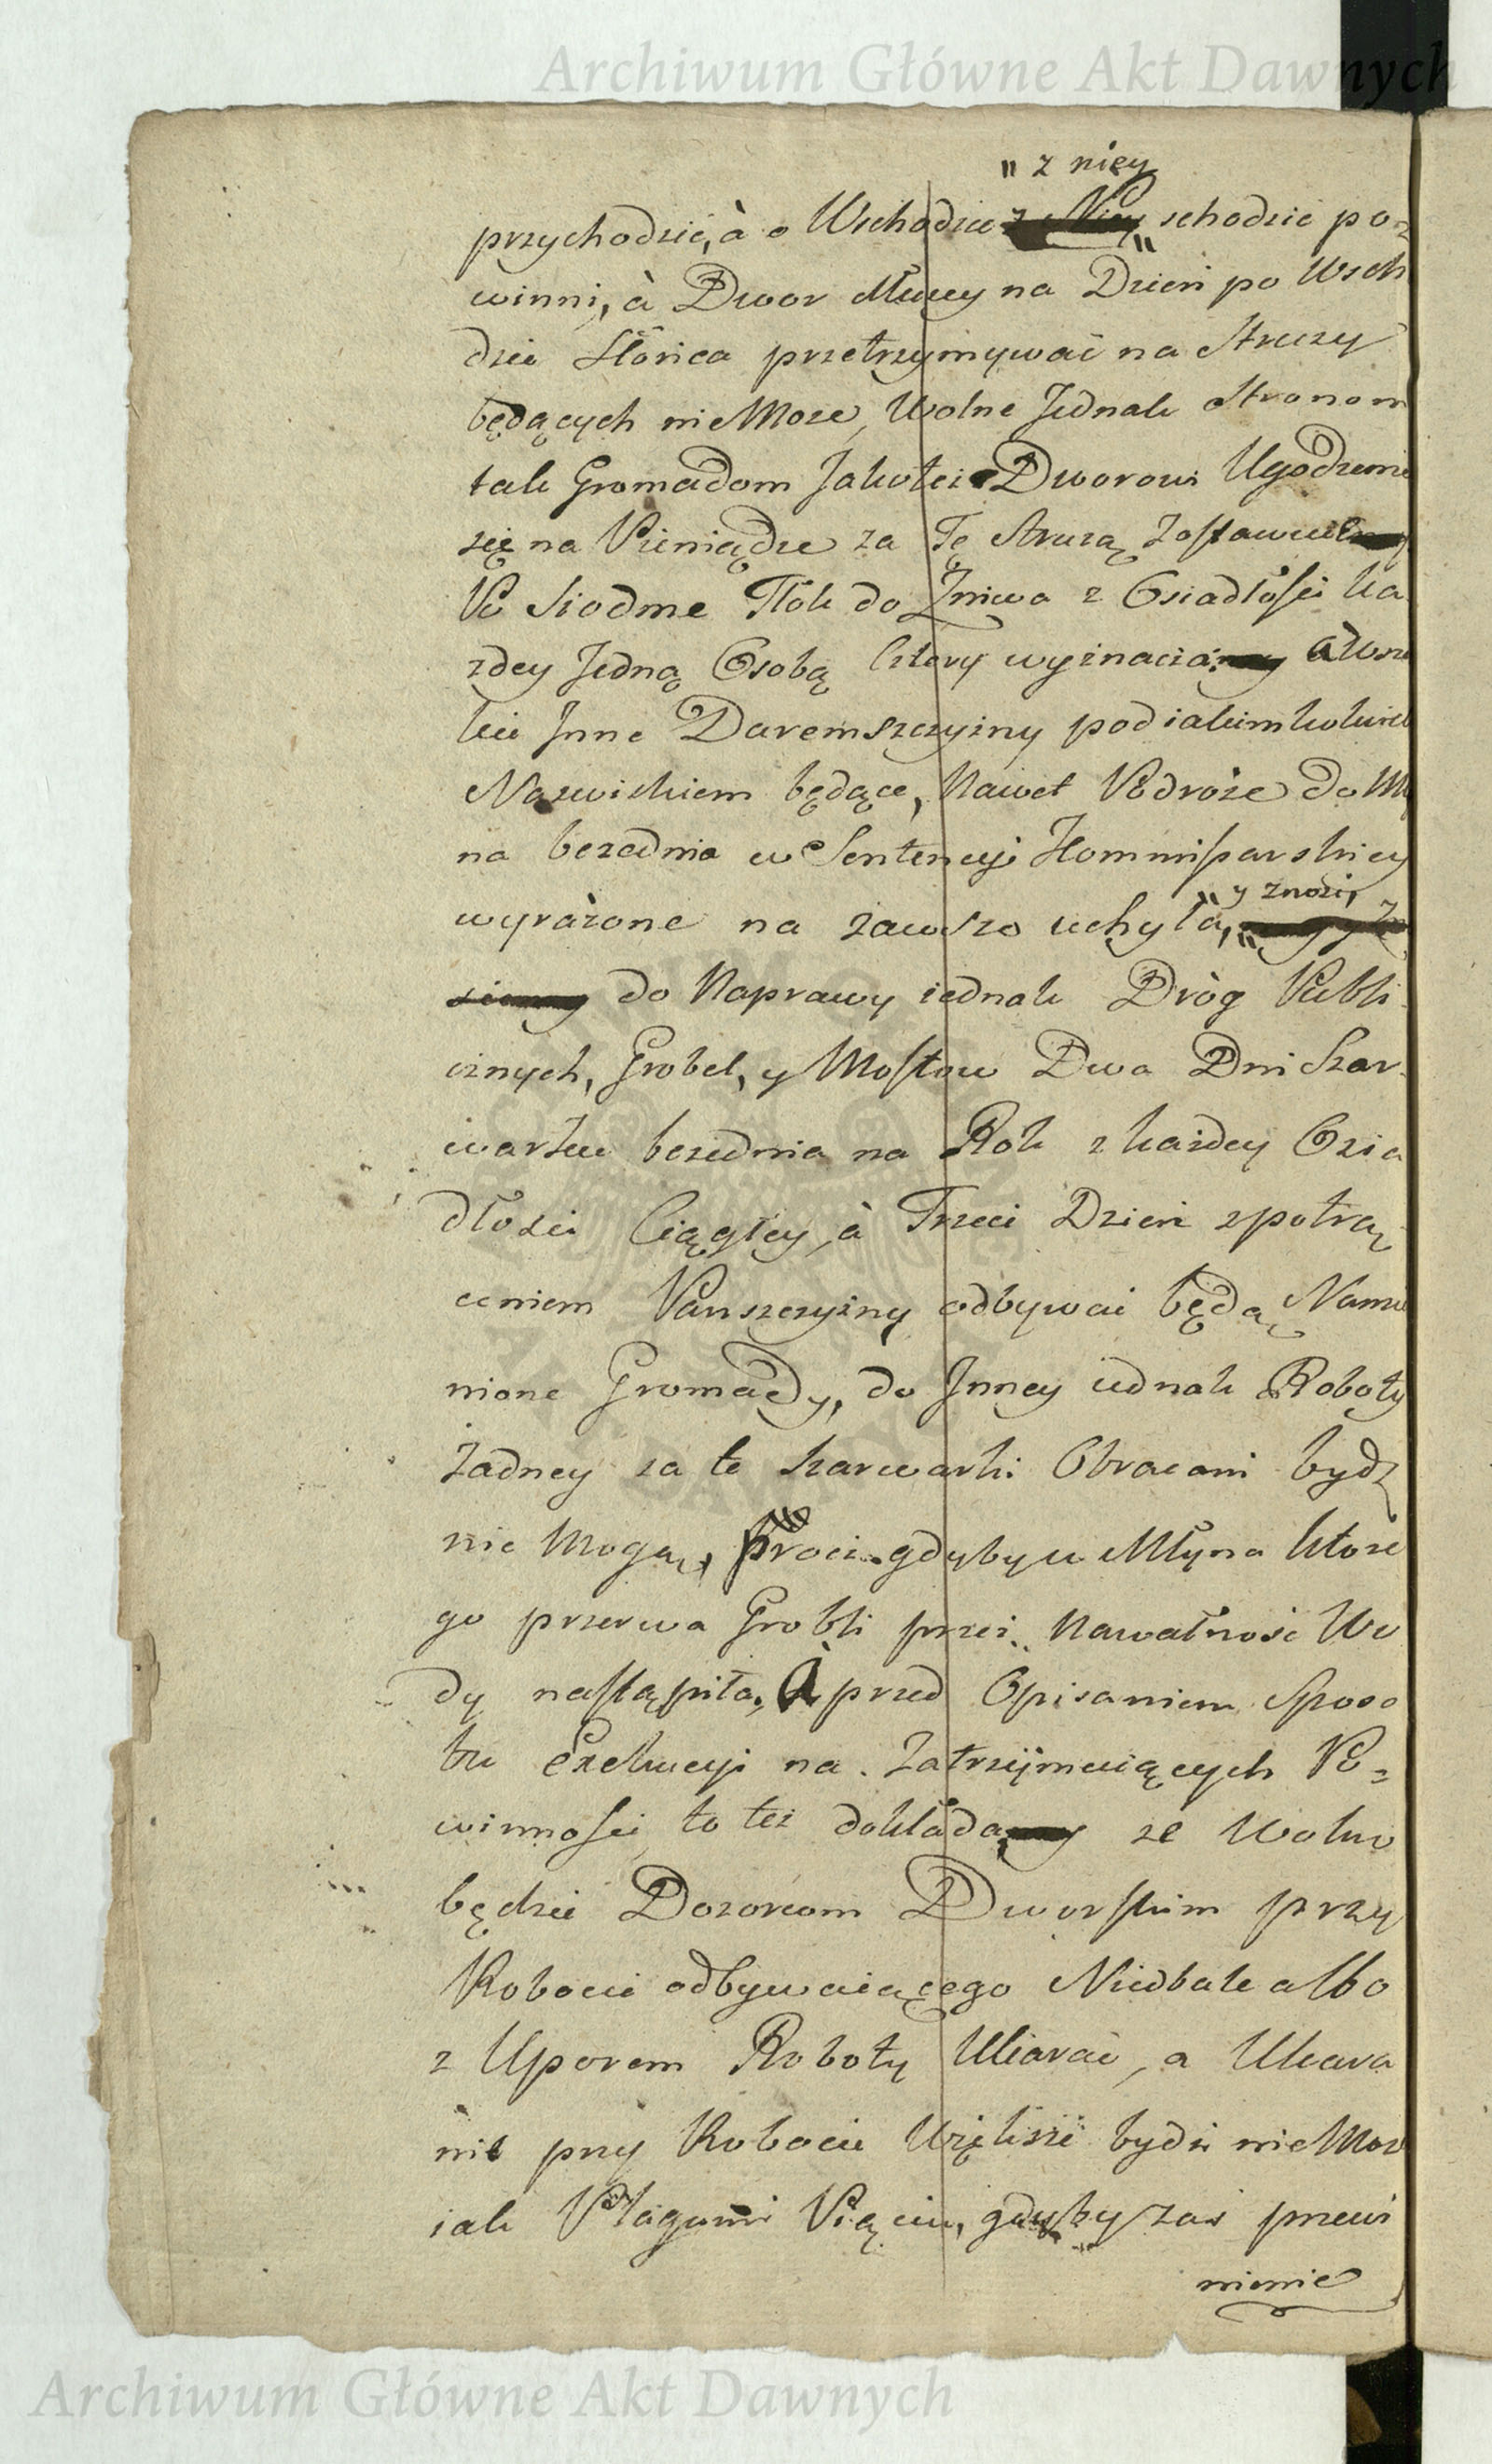 Archiwum Główne Akt Dawnych
„ z niey
przychodzić, à o Wschodzie z Niey „ schodzić po-
winni, à Dwor dłużey na Dzień po Wsch
dzie Słońca przetrzymywać na Struży
będących nie Może, Wolne Jednak Stronom
tak Gromadom Jakoteż Dworowi Ugodzenie
się na Pieniądze za Tę Strużą zostawuie
Po Siodme Tłok do Żniwa z Osiadłości ka
żdey Jedną Osobą Cztery wyznacza, a wsze
kie Jnne Daremszczyzny pod iakimkolwiek
Nazwiskiem będące, Nawet Podróże do Mły
na bezednia w Sentencyi Kommissarskiey
wyrażone na zawsze uchyla, „ y znosi,
do Naprawy iednak Dróg Publi
cznych, Grobel, y Mostow Dwa Dni Szar
warku bezednia na Rok z każdey Osia
dłości Ciągłey, à Trzeci Dzień z potrą
ceniem Panszczyzny odbywać będą Namie
nione Gromady, do Jnney iednak Roboty
żadney za te szarwarki Obracani bydź
nie Mogą, Procz gdyby u Młyna które
go przerwa Grobli przez Nawałność Wo
dy nastąpiła, A przed Opisaniem Sposo
bu Exekucyi na zatrzymuiących Po-
winności to też dokłada, że Wolno
będzie Dozorcom Dworskim przy
Robocie odbywaiącego Niedbale albo
z Uporem Roboty Ukarać, a Ukara
nie przy Robocie Więksże bydź nie Może
iak Plagami Pięciu, gdyby zaś przewi
nienie
Archiwum Główne Akt Dawnych